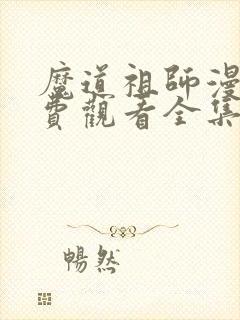 魔道祖師漫
費觀看全集
暢然